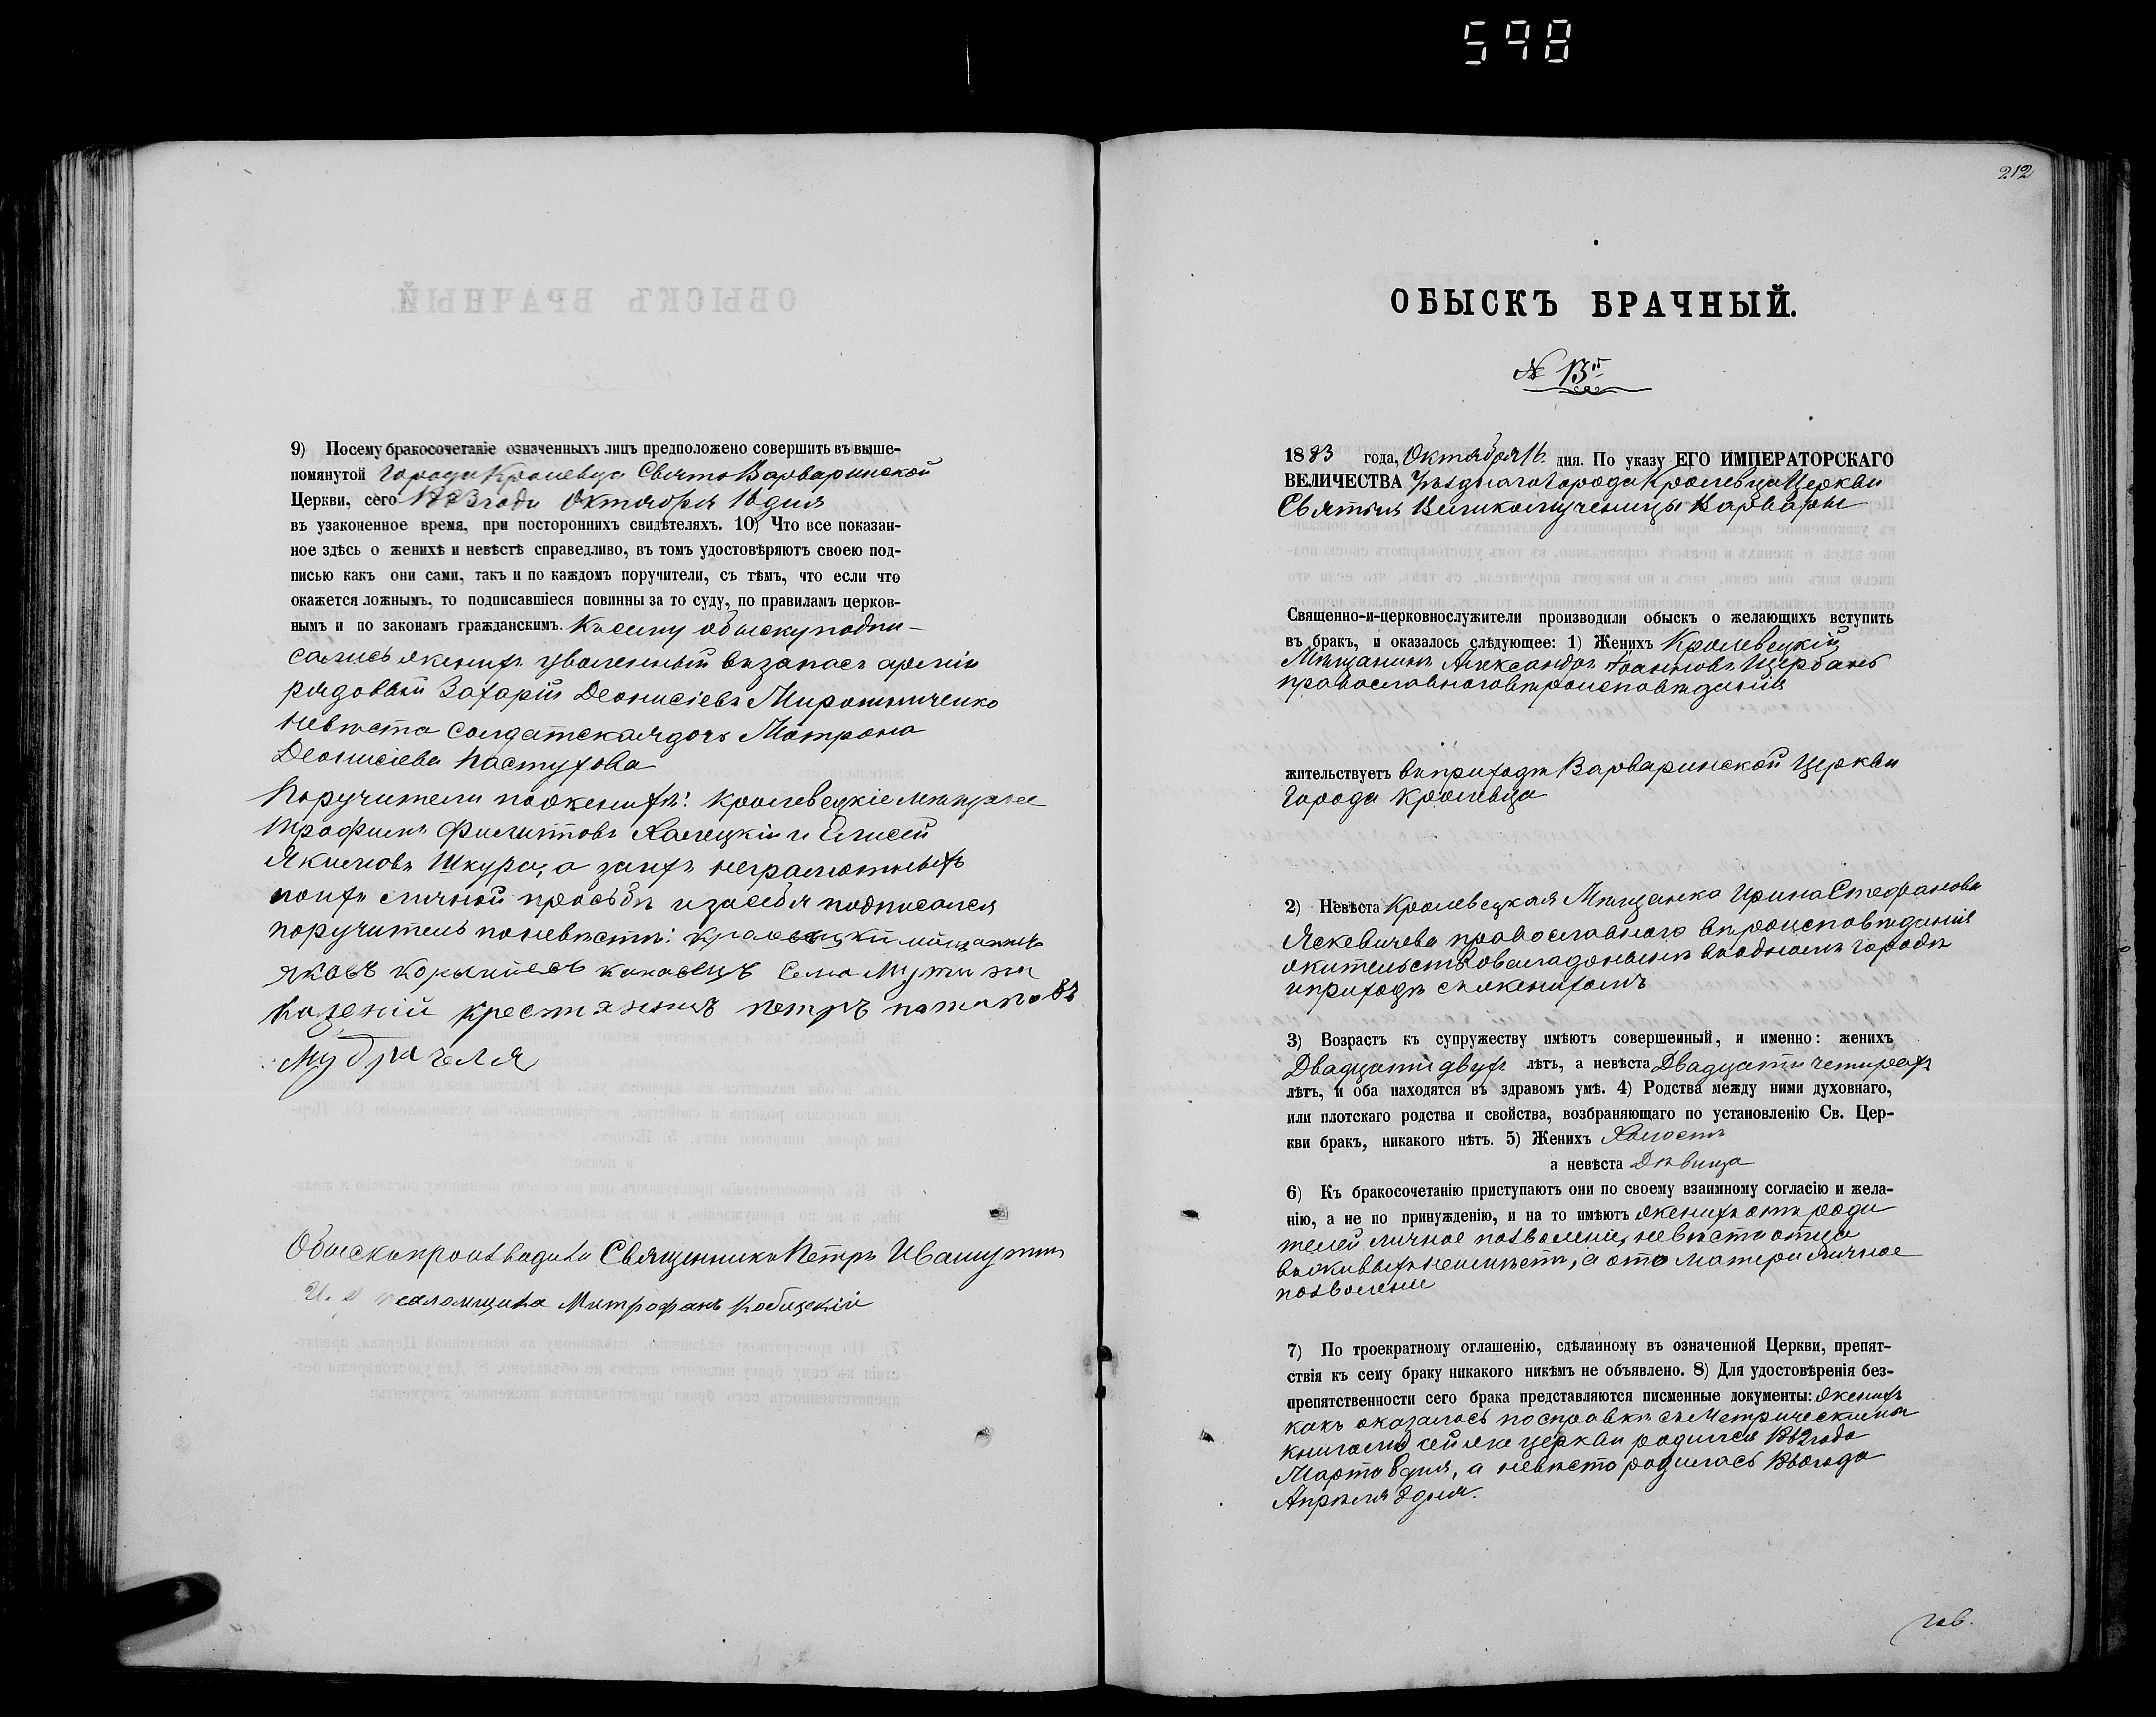 598
9) Посему бракосочетаніе означенныхъ лицъ предположено совершить въ выше-
помянутой Города Кролевца СвятоВарваринской
Церкви, сего 1883 года Октября 16 дня
въ узаконенное время, при постороннихъ свидѣтеляхъ. 10) Что все показан-
ное здѣсь о женихѣ и невѣстѣ справедливо, въ томъ удостовѣряютъ своею под-
писью какъ они сами, такъ и по каждомъ поручители, съ тѣмъ, что если что
окажется ложнымъ, то подписавшіеся повинны за то суду, по правиламъ церков-
нымъ и по законамъ гражданскимъ. Къ сему обыску подпи-
сались женихъ уволенный въ запасъ арміи
рядовый Захарій Деонисіевъ Мирошниченко
невѣста солдатская дочь Матрона
Деонисіева Пастухова
Поручители по женихѣ: Кролевецкіе мѣщане
Трофимъ Филиповъ Халецкій и Елисей
Якимовъ Шкура, а за ихъ неграмотныхъ
по ихъ личной просьбѣ и за себя подписался
поручитель по невѣстѣ: кролевецкий мещанинъ
яковъ села
крестянинъ петръ потаповъ
Обыскъ производили Священникъ Петръ Ивашутин
И. д. псаломщика Митрофанъ Кобицскій
212
ОБЫСКЪ БРАЧНЫЙ.
№ 13й
1883 года, Октября 16 дня. По указу ЕГО ИМПЕРАТОРСКАГО
ВЕЛИЧЕСТВА Уѣзднаго Города Кролевца Церкви
Святыя Великомученицы Варвары
Священно-и-церковнослужители производили обыскъ о желающихъ вступить
въ бракъ, и оказалось слѣдующее: 1) Женихъ Кролевецкій
Мѣщанинъ Александръ Іоанновъ Щербакъ
православнаго вѣроисповѣданія
жительствуетъ въ приходѣ Варваринской Церкви
Города Кролевца
2) Невѣста Кролевецкая Мѣщанка Ирина Стефанова
Яскевичева православнаго вѣроисповѣданія
жительствовала донынѣ въ одномъ городѣ
и приходѣ съ женихомъ
3) Возрастъ къ супружеству имѣютъ совершенный, и именно: женихъ
Двадцати двухъ лѣтъ, а невѣста Двадцати четырехъ
лѣтъ, и оба находятся въ здравомъ умѣ. 4) Родства между ними духовнаго,
или плотскаго родства и свойства, возбраняющаго по установленію Св. Цер-
кви бракъ, никакого нѣтъ. 5) Женихъ Холостъ
а невѣста Дѣвица
6) Къ бракосочетанію приступаютъ они по своему взаимному согласію и жела-
нію, а не по принужденію, и на то имѣютъ женихъ отъ роди
телей личное позволеніе, невѣста отца
въ живыхъ неимѣетъ, а отъ матери личное
позволеніе
7) По троекратному оглашенію, сдѣланному въ означенной Церкви, препят-
ствія къ сему браку никакого никѣмъ не объявлено. 8) Для удостовѣренія без-
препятственности сего брака представляются писменные документы: женихъ
какъ оказалось по справкѣ съ Метрическими
книгами сей же церкви родился 1862 года
Марта 8 дня, а невѣста родилась 1860 года
Апрѣля 8 дня.